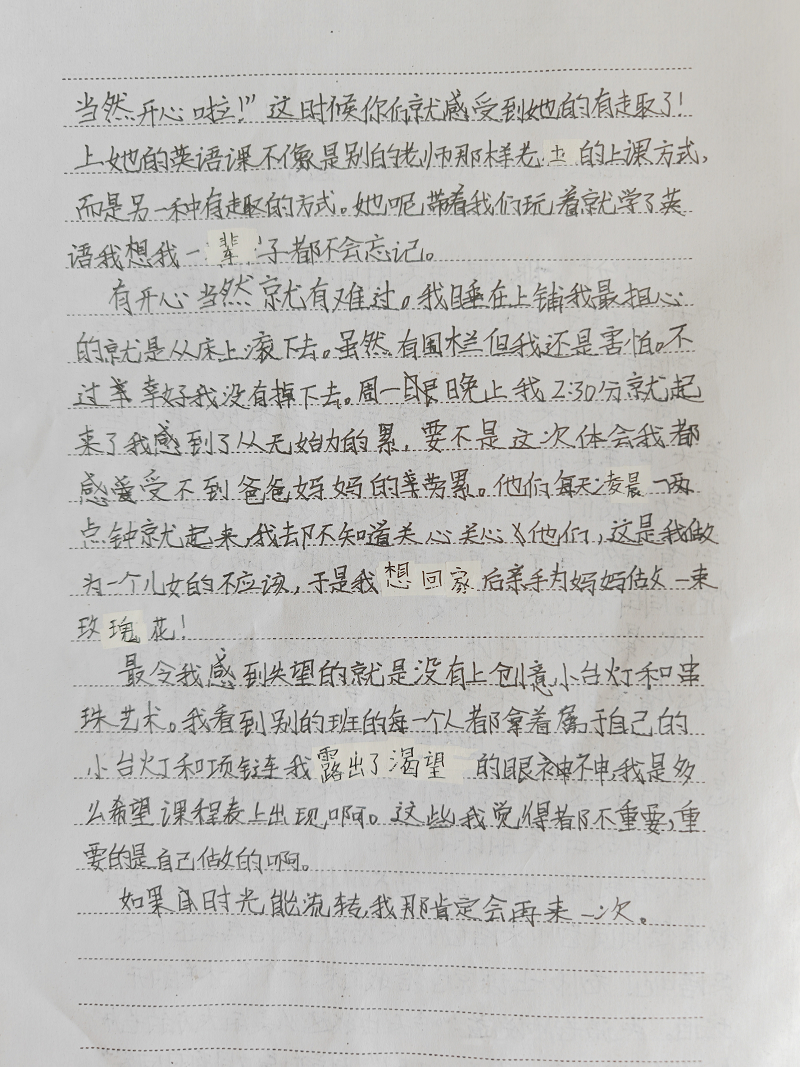 当然开心啦！”这时候你们就感受到她的有走取了！
上她的英语课不像是别的老师那样老土的上课方式，
而是另一种有趣的方式。她呢带着我们玩着就学了英
语我想我一辈子都不会忘记。
有开心当然就有难过。我睡在上铺我最担心
的就是从床上滚下去。虽然有围栏但我还是害怕。不
过幸好我没有掉下去。周一晚上我2:30分就起
来了我感到了从无始的累，要不是这次体会我都
感受不到爸爸妈妈的劳累。他们每天凌晨一两
点钟就起来，我却不知道关心关心他们，这是我做
为一个儿女的不应该，于是我想回家后亲手为妈妈做一束
玫瑰花！
最令我感到失望的就是没有上创意小台灯和串
珠艺术。我看到别的班的每一个人都拿着属于自己的
小台灯和项链我露出了渴望的眼神，我是多
么希望课程表上出现啊。这些我觉得都不重要，重
要的是自己做的啊。
如果时光能流转，我那肯定会再来一次。